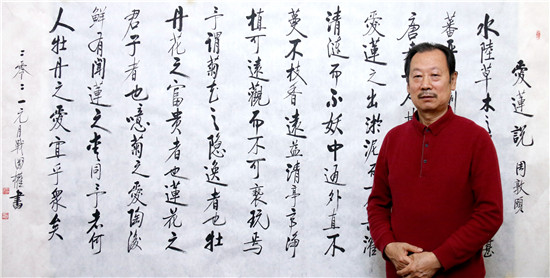 愛蓮說 周敦頤
水陸草木之 甚
蕃
唐
愛蓮之出淤泥而 濯
清漣而不妖中通外直不
蔓不枝香遠益清亭亭淨
植可遠觀而不可褻玩焉
予謂菊花之隱逸者也牡
丹花之富貴者也蓮花之
君子者也噫菊之愛陶後
鮮有聞蓮之愛同予者何
人牡丹之愛宜乎衆矣
二零二一元月戰國權書